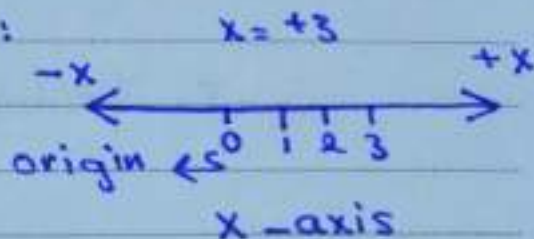 : x = +3
-x +x
0 1 2 3
origin
x-axis